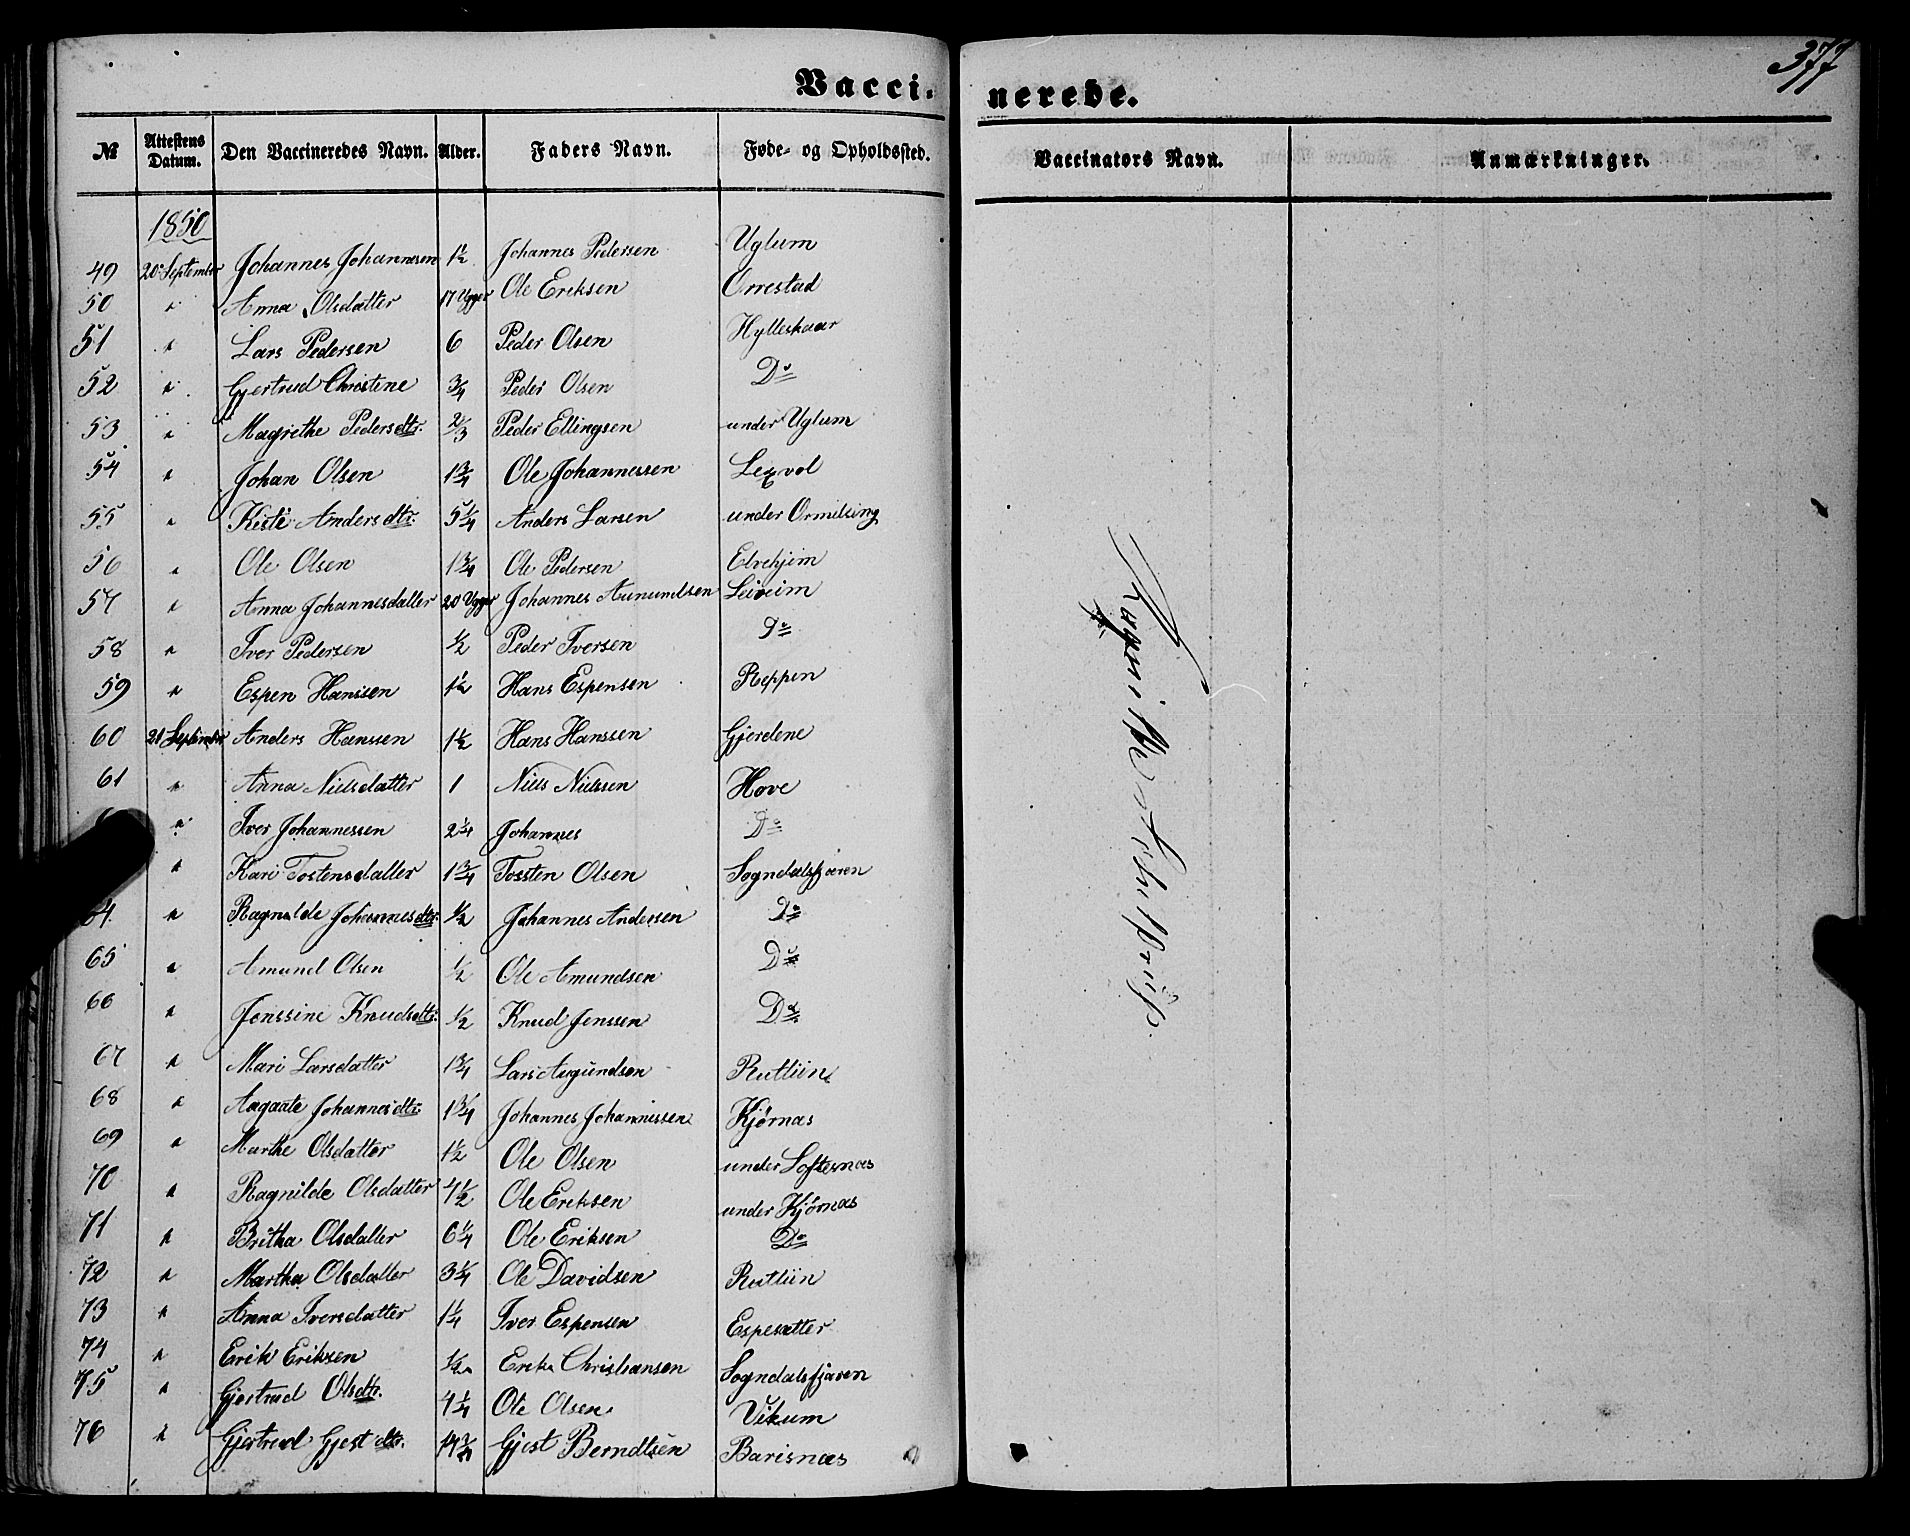 377
Vacci-
nerede.
№ Attestens Datum. Den Vaccineredes Navn. Alder. Faders Navn. Føde- og Opholdssted. Vaccinators Navn. Anmærkninger.
1850
49 20 September Johannes Johannesen 1½ Johannes Pedersen Uglum
50 " Anna Olsdatter 17 Uger Ole Eriksen Orrestad
51 " Lars Pedersen 6 Peder Olsen Hylleskaar
52 " Gjertrud Christene ¾ Peder Olsen Do
53 " Magrethe Pedersdtr. ⅔ Peder Ellingsen under Uglum
54 " Johan Olsen 1¾ Ole Johannessen Lexvol
55 " Kisti Andersdtr. 5¼ Anders Larsen under Ormelsing
56 " Ole Olsen 1¾ Ole Pedersen Elvekjem
57 " Anna Johannesdatter 20 Uger Johannes Amundsen
58 " Iver Pedersen ½ Peder Iversen Do
59 " Espen Hanssen 1½ Hans Espensen Reppen
60 21 September Anders Hanssen 1½ Hans Hanssen Gjerdene
61 " Anna Nielsdatter 1 Niels Nielssen Hove
" Iver Johannessen 2¼ Johannes Do
" Kari Tostensdatter 1¾ Tossten Olsen Sogndalsfjæren
64. " Ragnilde Johannesdtr. ½ Johannes Andersen Do
65 " Amund Olsen ½ Ole Amundsen Do
66 " Jenssine Knudsdtr. ½ Knud Jenssen Do
67 " Mari Larsdatter 1¾ Lars Augundson Rutliin
68 " Aagaate Johannesdtr. 1¾ Johannes Johannessen Kjørnæs
69 " Marthe Olsdatter 1½ Ole Olsen under Loftesnæs
70 " Ragnilde Olsdatter 4½ Ole Eriksen under Kjørnæs
71 " Britha Olsdatter 6¼ Ole Eriksen Do
72 " Martha Olsdatter 3¼ Ole Davidsen Rutliin
73 " Anna Iversdatter 1¼ Iver Espensen Espesætter
74 " Erik Eriksen ½ Erik Christiansen Sogndalsfjæren
75 " Gjertrud Olsdtr. 4¼ Ole Olsen Vikum
76 " Gjertrud Gjestdtr. Gjest Berndtsen Barsnæs